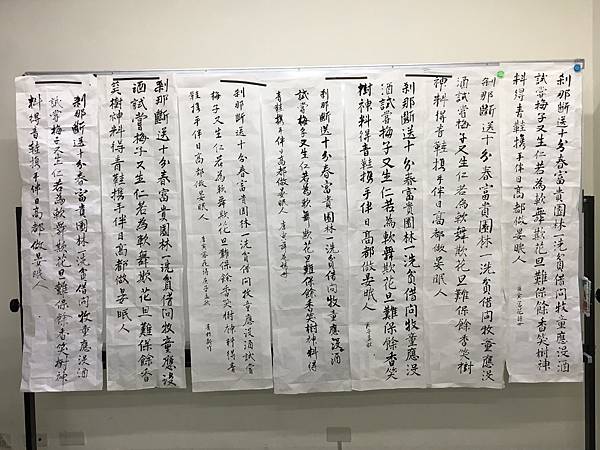 刹那斷送十分春富貴園林一洗貧借問牧童應沒酒
試嘗梅子又生仁若為軟舞欺花旦難保餘香笑樹神
料得青鞋携手伴日高都做晏眠人
刹那斷送十分春富貴園林一洗貧借問牧童應沒
酒試嘗梅子又生仁若為軟舞欺花旦難保餘香笑樹
神料得青鞋携手伴日高都做晏眠人
刹那斷送十分春富貴園林一洗貧借問牧童應沒
酒試嘗梅子又生仁若為軟舞欺花旦難保餘香笑
樹神料得青鞋携手伴日高都做晏眠人
刹那斷送十分春富貴園林一洗貧借問牧童應沒酒
試嘗梅子又生仁若為軟舞欺花旦難保餘香笑樹神料得
青鞋携手伴日高都做晏眠人
刹那斷送十分春富貴園林一洗貧借問牧童應沒酒試嘗
梅子又生仁若為軟舞欺花旦難保餘香笑樹神料得青
鞋携手伴日高都做晏眠人
刹那斷送十分春富貴園林一洗貧借問牧童應沒
酒試嘗梅子又生仁若為軟舞欺花旦難保餘香
笑樹神料得青鞋携手伴日高都做晏眠人
刹那斷送十分春富貴園林一洗貧借問牧童應沒酒
試嘗梅子又生仁若為軟舞欺花旦難保餘香笑樹神
料得青鞋携手伴日高都做晏眠人